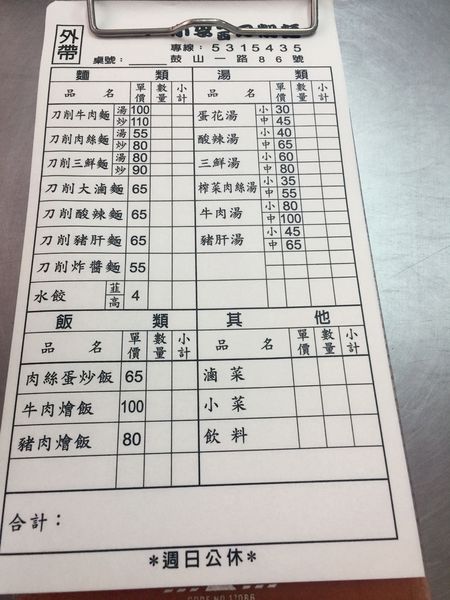 外帶
專線：5315435
桌號：____ 鼓山一路86號
麵類 湯類
品名 單價 數量 小計 品名 單價 數量 小計
刀削牛肉麵 湯 100 炒 110
蛋花湯 小 30 中 45
刀削肉絲麵 湯 55 炒 80
酸辣湯 小 40 中 65
刀削三鮮麵 湯 80 炒 90
三鮮湯 小 60 中 80
刀削大滷麵 65
榨菜肉絲湯 小 35 中 55
刀削酸辣麵 65
牛肉湯 小 80 中 100
刀削豬肝麵 65
豬肝湯 小 45 中 65
刀削炸醬麵 55
水餃 韮 高 4
飯類 其他
品名 單價 數量 小計 品名 單價 數量 小計
肉絲蛋炒飯 65 滷菜
牛肉燴飯 100 小菜
豬肉燴飯 80 飲料
合計：
*週日公休*